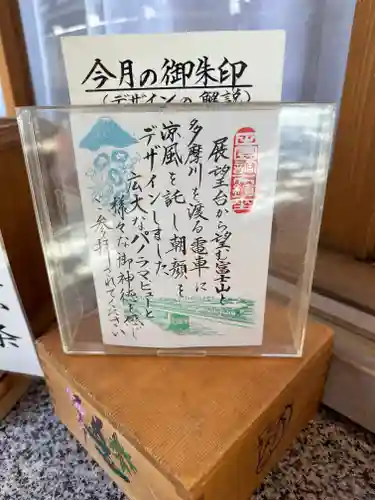 今月の御朱印
(デザインの解説)
展望台から望む富士山と
多摩川を渡る電車に
涼風を託し朝顔を
デザインしました
広大なパノラマビューと
様々な御神徳を感じ
ご参拝されて下さい